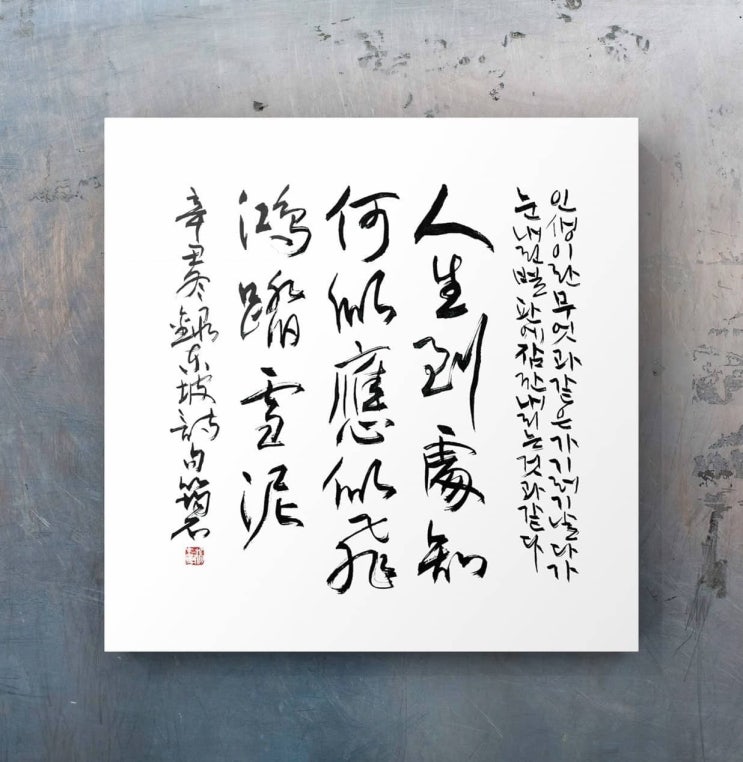 인생이란 무엇과 같은가 기러기 날다가
눈 내린 벌판에 잠깐 내리는 것과 같다
人生到處知
何似應似飛
鴻踏雪泥
辛丑冬錄東坡詩句